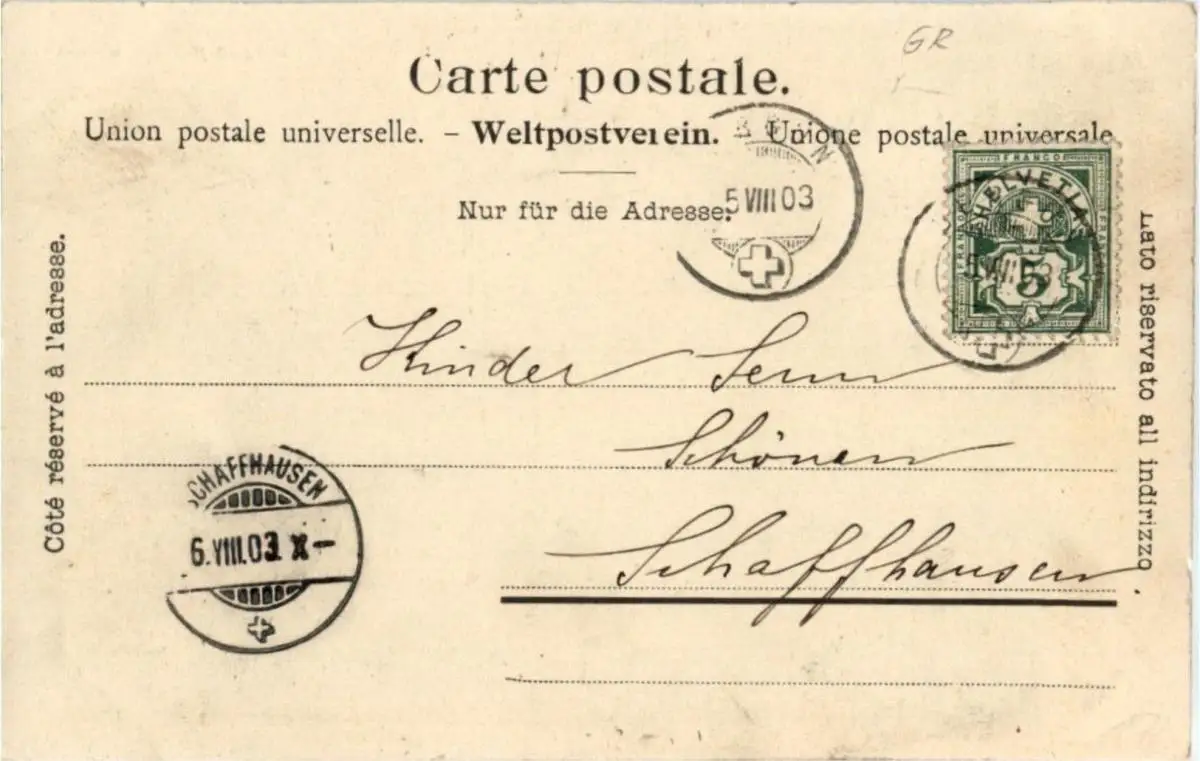 GR
Carte postale.
Union postale universelle. – Weltpostverein. – Unione postale universale
Nur für die Adresse.
5 VIII 03
FRANCO
HELVETIA
5
Côté réservé à l'adresse.
Lato riservato all indirizzo
Kinder Senn
Schönau
Schaffhausen.
SCHAFFHAUSEN
6.VIII.03. X–